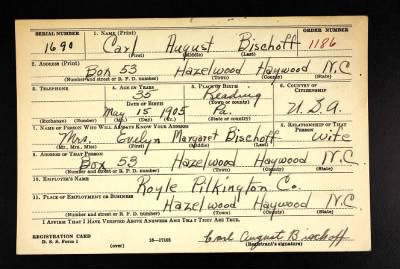 SERIAL NUMBER 1. NAME (Print) ORDER NUMBER
1690 Carl August Bischoff 1186
(First) (Middle) (Last)
2. ADDRESS (Print)
Box 53 Hazelwood Haywood N.C
(Number and street or R. F. D. number) (Town) (County) (State)
3. TELEPHONE 4. AGE IN YEARS 5. PLACE OF BIRTH 6. COUNTRY OF CITIZENSHIP
35 Reading
DATE OF BIRTH (Town or county)
May 15 1905 Pa. U.S.A.
(Exchange) (Number) (Mo.) (Day) (Yr.) (State or country)
7. NAME OF PERSON WHO WILL ALWAYS KNOW YOUR ADDRESS 8. RELATIONSHIP OF THAT PERSON
Mrs. Evelyn Margaret Bischoff Wife
(Mr., Mrs., Miss) (First) (Middle) (Last)
9. ADDRESS OF THAT PERSON
Box 53 Hazelwood Haywood N.C
(Number and street or R. F. D. number) (Town) (County) (State)
10. EMPLOYER'S NAME
Royle Pilkington Co.
11. PLACE OF EMPLOYMENT OR BUSINESS
Hazelwood Haywood N.C
(Number and street or R. F. D. number) (Town) (County) (State)
I AFFIRM THAT I HAVE VERIFIED ABOVE ANSWERS AND THAT THEY ARE TRUE.
REGISTRATION CARD
D. S. S. Form 1 (over) 16—17105 Carl August Bischoff
(Registrant's signature)